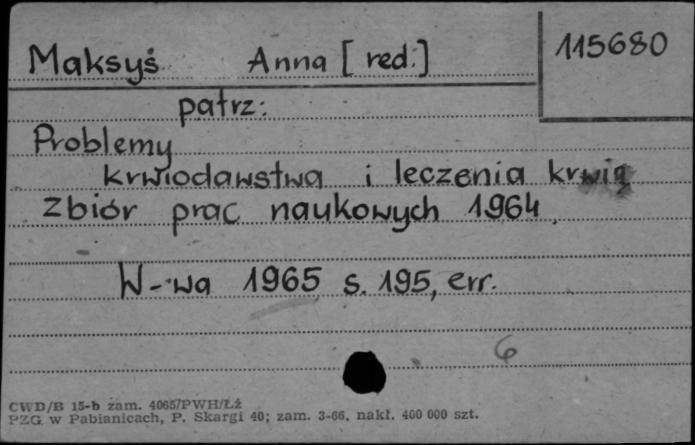 Maksyś Anna [red.] 115680
patrz:
Problemy
krwiodawstwa i leczenia krwią
Zbiór prac naukowych 1964
W-wa 1965 s. 195, err.
6
CWD/B 15-b zam. 4065/PWH/Łż
PZG w Pabianicach, P. Skargi 40; zam. 3-66, nakł. 400 000 szt.